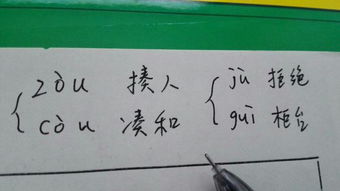 zòu 揍人 jù 拒绝
còu 凑和 guì 柜台